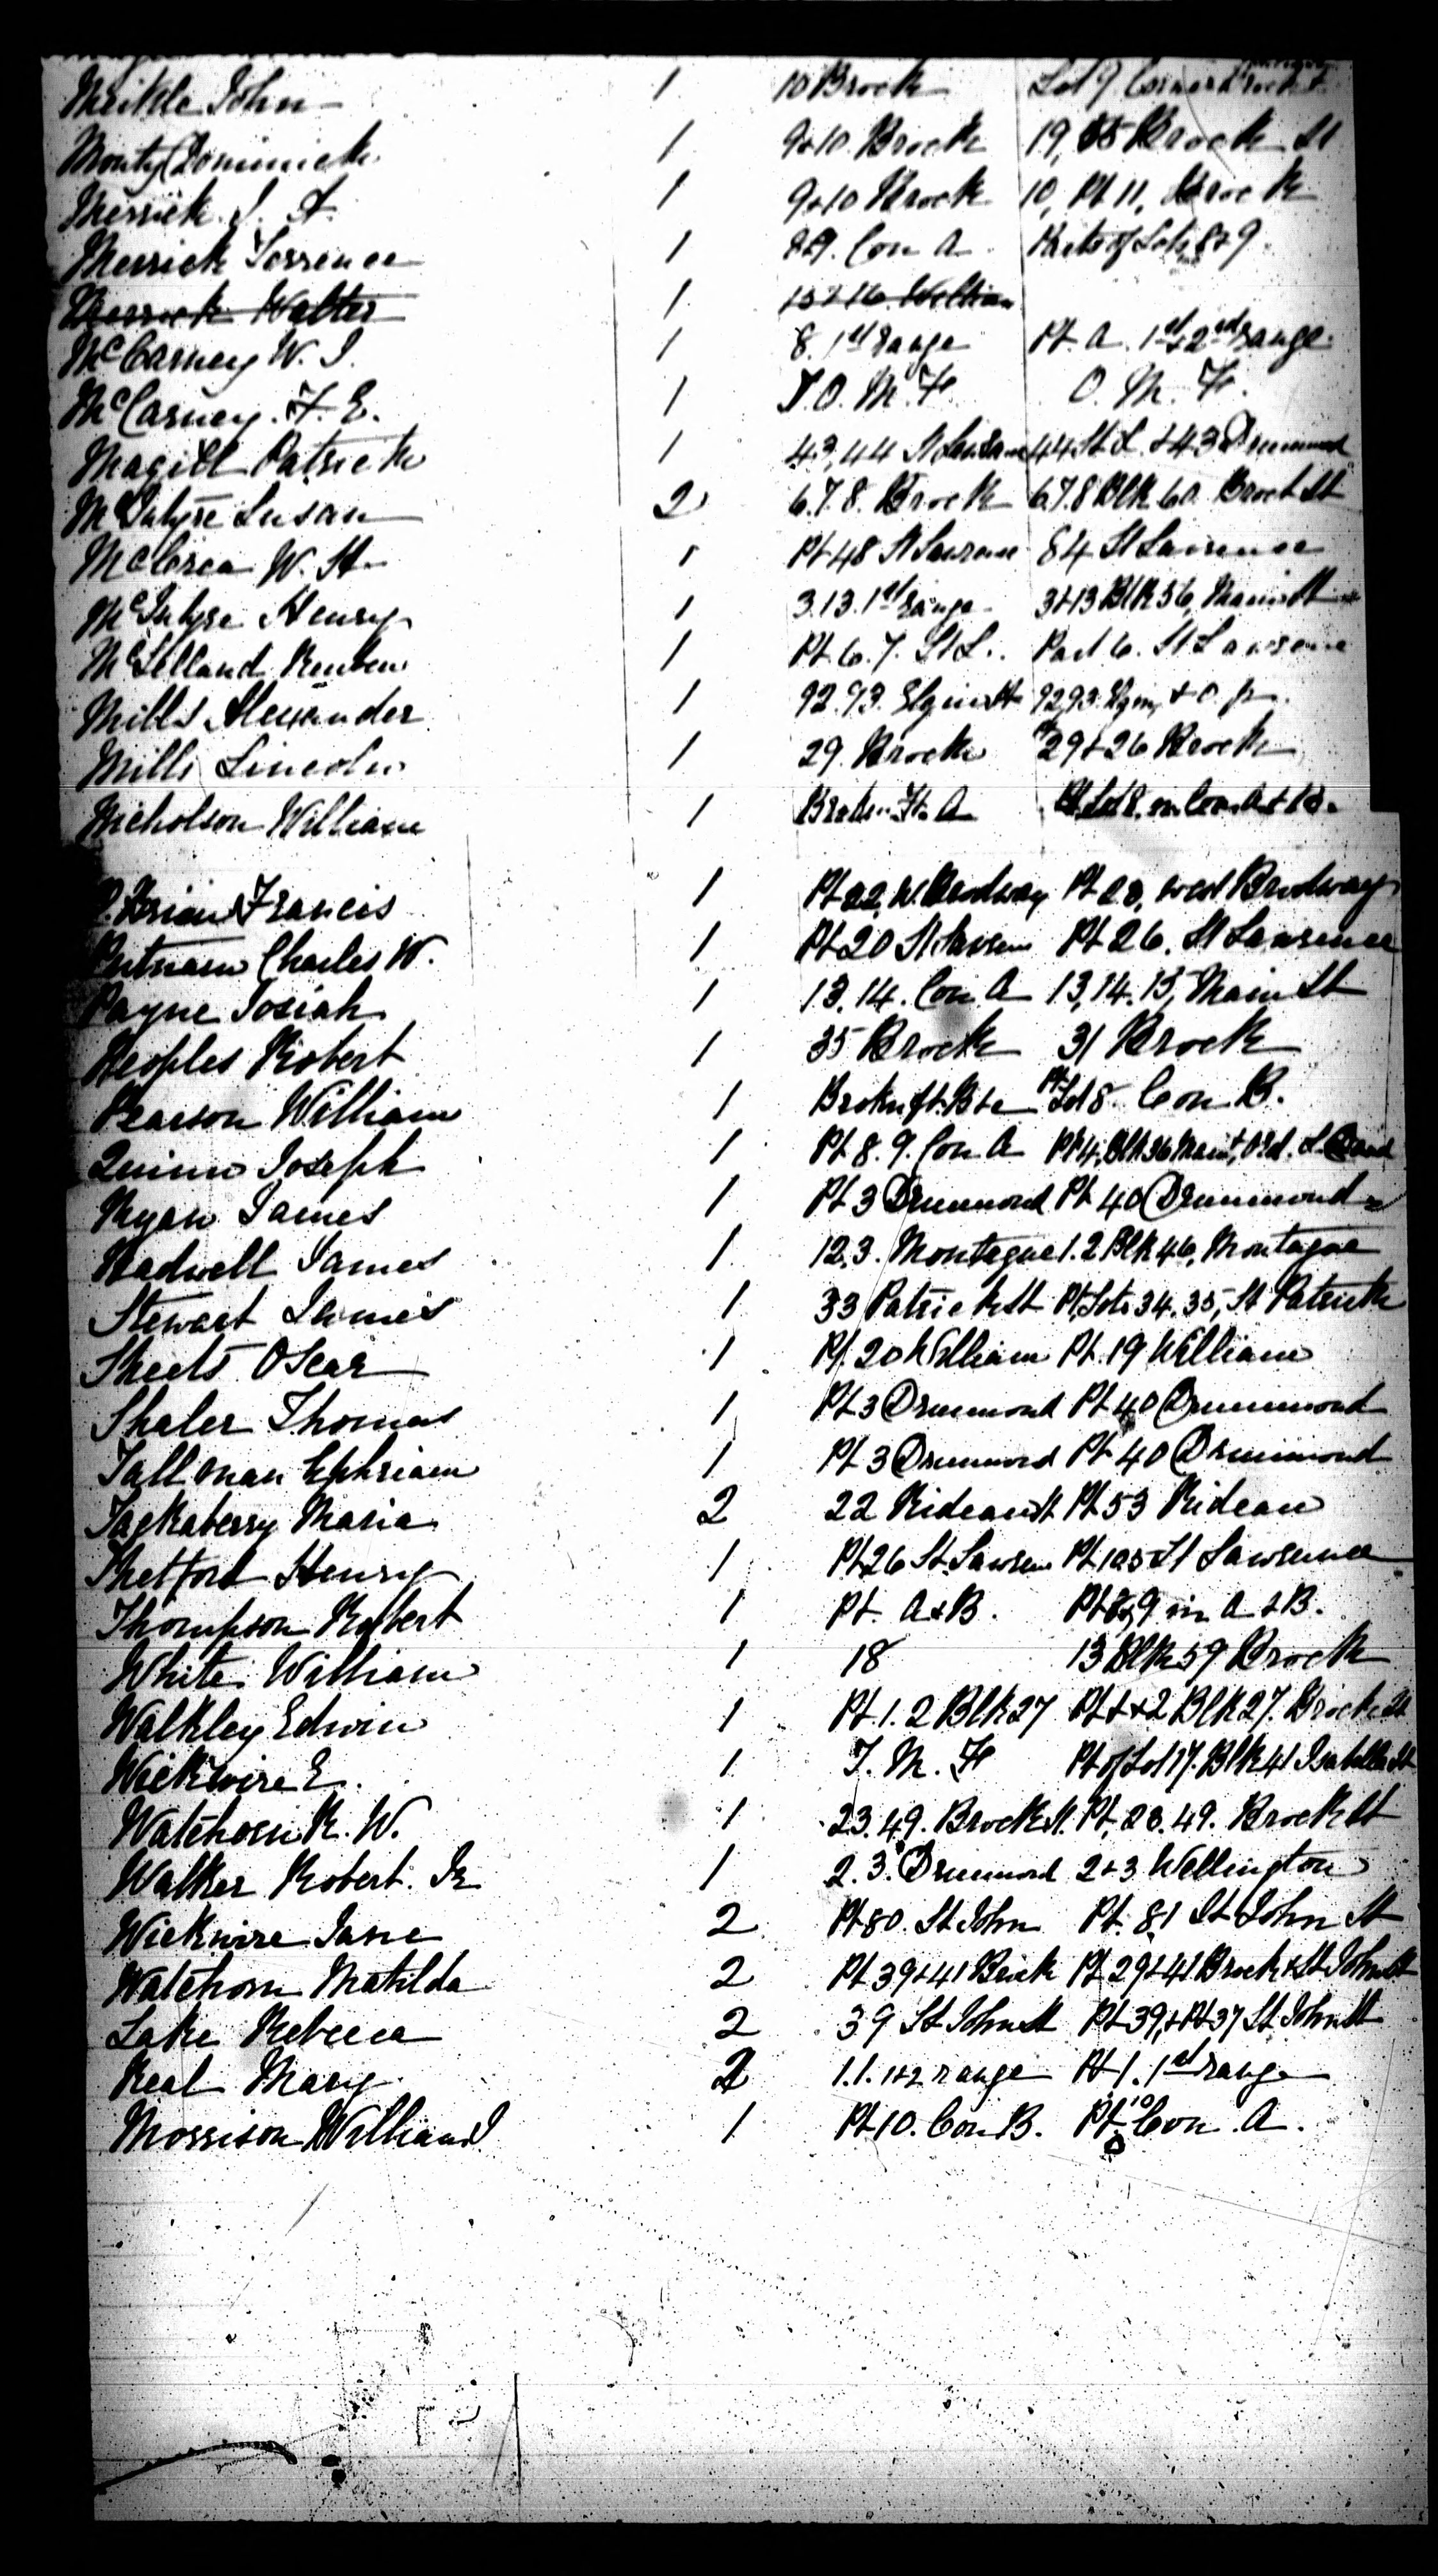 Meikle John 1 10 Brock Lot 9 Corner Brock
Monty Dominick 1 9+10 Brock 19, Brock St
Merrick J. A. 1 9+10 Brock 10, Pt 11, Brock
Merrick Terrence 1 8+9. Con A Parts of Lots 8+9
Merrick Walter 1 15+16 William
McCarney W. J. 1 8. 1st range Pt. A. 1st+2nd range
McCarney. F. E. 1 O. M. F. O. M. F.
Magill Patrick 1 43,44 St Lawrence 44 St L. +43 Drummond
McIntyre Susan 2 6.7.8. Brock 6.7.8 Blk 60 Brock St
McCrea W. H. 1 Pt 48 St Lawrence 84 St Lawrence
McIntyre Henry 1 3.13. 1st range 3+13 Blk 36, Main St
McLelland Reuben 1 Pt. 6. 7. St L. Part 6. St Lawrence
Mills Alexander 1 92.93. Elgin St 92,93. Elgin, +
Mills Lincoln 1 29. Brock 29+26 Brock
Nicholson William 1 Broken Ft. A Pt Lot 8, in Con. A+B.
O.Brien Francis 1 Pt 22, W. Brodway Pt 23, west Brodway
Putnam Charles W. 1 Pt 20 St Lawren Pt 26. St Lawrence
Payne Josiah 1 13.14. Con A 13,14.15, Main St
Peoples Robert 1 35 Brock 31 Brock
Pearson William 1 Broken ft. B+c Pt Lot 8. Con B.
Quinn Joseph 1 Pt 8. 9. Con. A Pt 4, Blk 36 Main,
Ryan James 1 Pt 3 Drummond Pt 40 Drummond
Radwell James 1 12.3. Montague 1.2 Blk 46, Montague
Stewart James 1 33 Patrick St Pt. Lots 34. 35, St Patrick
Sheets Oscar 1 Pt. 20 William Pt. 19 William
Shaler Thomas 1 Pt 3 Drummond Pt 40 Drummond
Tallman Ephriam 1 Pt 3 Drummond Pt 40 Drummond
Tackaberry Maria 2 22 Rideau St Pt 53 Rideau
Thetford Henry 1 Pt 26 St. Lawren Pt 105 St Lawrence
Thompson Robert 1 Pt. A+B. Pt 9 in A+B.
White William 1 18 13 Blk 59 Brock
Walkley Edwin 1 Pt 1. 2 Blk 27 Pt 1+2 Blk 27. Brock St
Wickwire E. 1 T. M. F Pt of Lot 17. Blk 41 Isabella St
Watchorn R. W. 1 23. 49. Brock St. Pt. 23. 49. Brock St
Walker Robert. Jr 1 2. 3. Drummond 2+3 Wellington
Wickwire Jane 2 Pt 80. St John Pt. 81 St John St
Watchorn Matilda 2 Pt 39+41 Brock Pt 29+41 Brock + St John St
Lake Rebecca 2 39 St John St Pt 39, + Pt 37 St. John St
Real Mary 2 1.1. 1+2 range Pt 1. 1st range
Morrison William J 1 Pt 10. Con B. Pt. 10 Con. A.